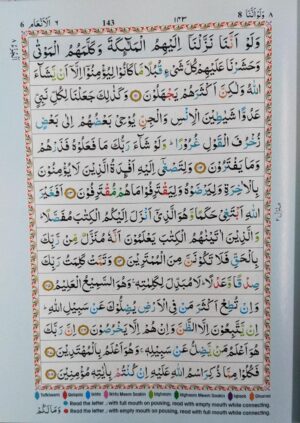 6 الانعام ٦ 143 ١٤٣ ولواننا ٨ 8
وَلَوْ اَنَّنَا نَزَّلْنَاۤ اِلَيْهِمُ الْمَلٰٓئِكَةَ وَكَلَّمَهُمُ الْمَوْتٰى
وَحَشَرْنَا عَلَيْهِمْ كُلَّ شَىْءٍ قُبُلًا مَّا كَانُوْا لِيُؤْمِنُوْۤا اِلَّاۤ اَنْ يَّشَآءَ
اللّٰهُ وَلٰكِنَّ اَكْثَرَهُمْ يَجْهَلُوْنَ ۝ وَكَذٰلِكَ جَعَلْنَا لِكُلِّ نَبِىٍّ
عَدُوًّا شَيٰطِيْنَ الْاِنْسِ وَالْجِنِّ يُوْحِىْ بَعْضُهُمْ اِلٰى بَعْضٍ
زُخْرُفَ الْقَوْلِ غُرُوْرًا ؕ وَلَوْ شَآءَ رَبُّكَ مَا فَعَلُوْهُ فَذَرْهُمْ
وَمَا يَفْتَرُوْنَ ۝ وَلِتَصْغٰۤى اِلَيْهِ اَفْـِٕدَةُ الَّذِيْنَ لَا يُؤْمِنُوْنَ
بِالْاٰخِرَةِ وَلِيَرْضَوْهُ وَلِيَقْتَرِفُوْا مَا هُمْ مُّقْتَرِفُوْنَ ۝ اَفَغَيْرَ
اللّٰهِ اَبْتَغِىْ حَكَمًا وَّهُوَ الَّذِىْۤ اَنْزَلَ اِلَيْكُمُ الْكِتٰبَ مُفَصَّلًا ؕ
وَالَّذِيْنَ اٰتَيْنٰهُمُ الْكِتٰبَ يَعْلَمُوْنَ اَنَّهٗ مُنَزَّلٌ مِّنْ رَّبِّكَ
بِالْحَقِّ فَلَا تَكُوْنَنَّ مِنَ الْمُمْتَرِيْنَ ۝ وَتَمَّتْ كَلِمَتُ رَبِّكَ
صِدْقًا وَّعَدْلًا ؕ لَا مُبَدِّلَ لِكَلِمٰتِهٖ ۚ وَهُوَ السَّمِيْعُ الْعَلِيْمُ ۝
وَاِنْ تُطِعْ اَكْثَرَ مَنْ فِى الْاَرْضِ يُضِلُّوْكَ عَنْ سَبِيْلِ اللّٰهِ ؕ
اِنْ يَّتَّبِعُوْنَ اِلَّا الظَّنَّ وَاِنْ هُمْ اِلَّا يَخْرُصُوْنَ ۝ اِنَّ رَبَّكَ
هُوَ اَعْلَمُ مَنْ يَّضِلُّ عَنْ سَبِيْلِهٖ ۚ وَهُوَ اَعْلَمُ بِالْمُهْتَدِيْنَ ۝
فَكُلُوْا مِمَّا ذُكِرَ اسْمُ اللّٰهِ عَلَيْهِ اِنْ كُنْتُمْ بِاٰيٰتِهٖ مُؤْمِنِيْنَ ۝
Tafkheem Qalqala Ikhfa Ikhfa Meem Saakin Idghaam Idghaam Meem Saakin Iqlaab Ghunna
Read the letter , with full mouth on pausing, read with empty mouth while connecting.
Read the letter , with empty mouth on pausing, read with full mouth while connecting.
وَمَا لَكُمْ